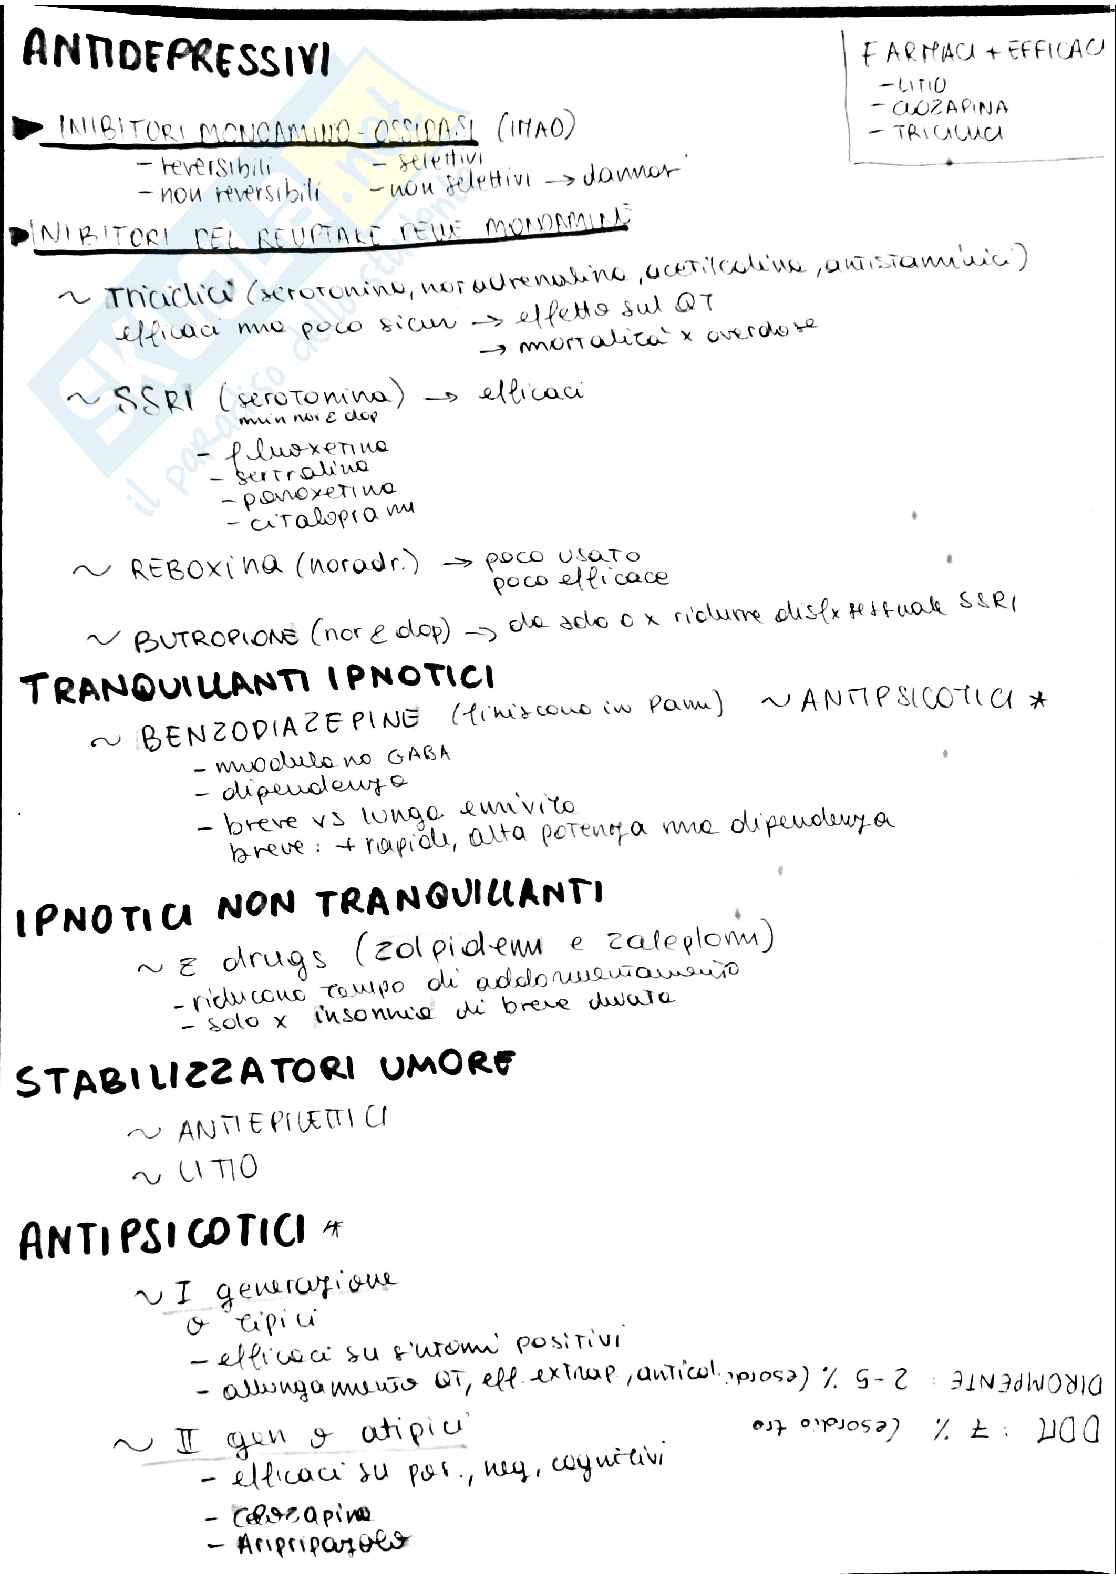 ANTIDEPRESSIVI
FARMACI + EFFICACI
- LITIO
- CLOZAPINA
- TRICICLICI
INIBITORI MONOAMINO-OSSIDASI (IMAO)
- reversibili - selettivi
- non reversibili - non selettivi → dannosi
INIBITORI DEL REUPTAKE DELLE MONOAMINE
~ Triciclici (serotonina, noradrenalina, acetilcolina, antistaminici)
efficaci ma poco sicuri → effetto sul QT
→ mortalità x overdose
~ SSRI (serotonina) → efficaci
min nor e dop
- fluoxetina
- sertralina
- paroxetina
- citalopram
~ REBOXINA (noradr.) → poco usato
poco efficace
~ BUTROPIONE (nor e dop) → da solo o x ridurre disfx sessuale SSRI
TRANQUILLANTI IPNOTICI
~ BENZODIAZEPINE (finiscono in Pam) ~ ANTIPSICOTICI *
- modulano GABA
- dipendenza
- breve vs lunga emivita
breve: + rapide, alta potenza ma dipendenza
IPNOTICI NON TRANQUILLANTI
~ Z drugs (zolpidem e zaleplom)
- riducono tempo di addormentamento
- solo x insonnia di breve durata
STABILIZZATORI UMORE
~ ANTIEPILETTICI
~ LITIO
ANTIPSICOTICI *
~ I generazione
o tipici
- efficaci su sintomi positivi
- allungamento QT, eff. extrap, anticol.
~ II gen o atipici
- efficaci su pos., neg, cognitivi
- Clozapina
- Aripripazolo
DDM : 7 % (esordio tra
DIROMPENTE : 2-5 % (esord.
SKUOLA.net
il paradiso dello studente